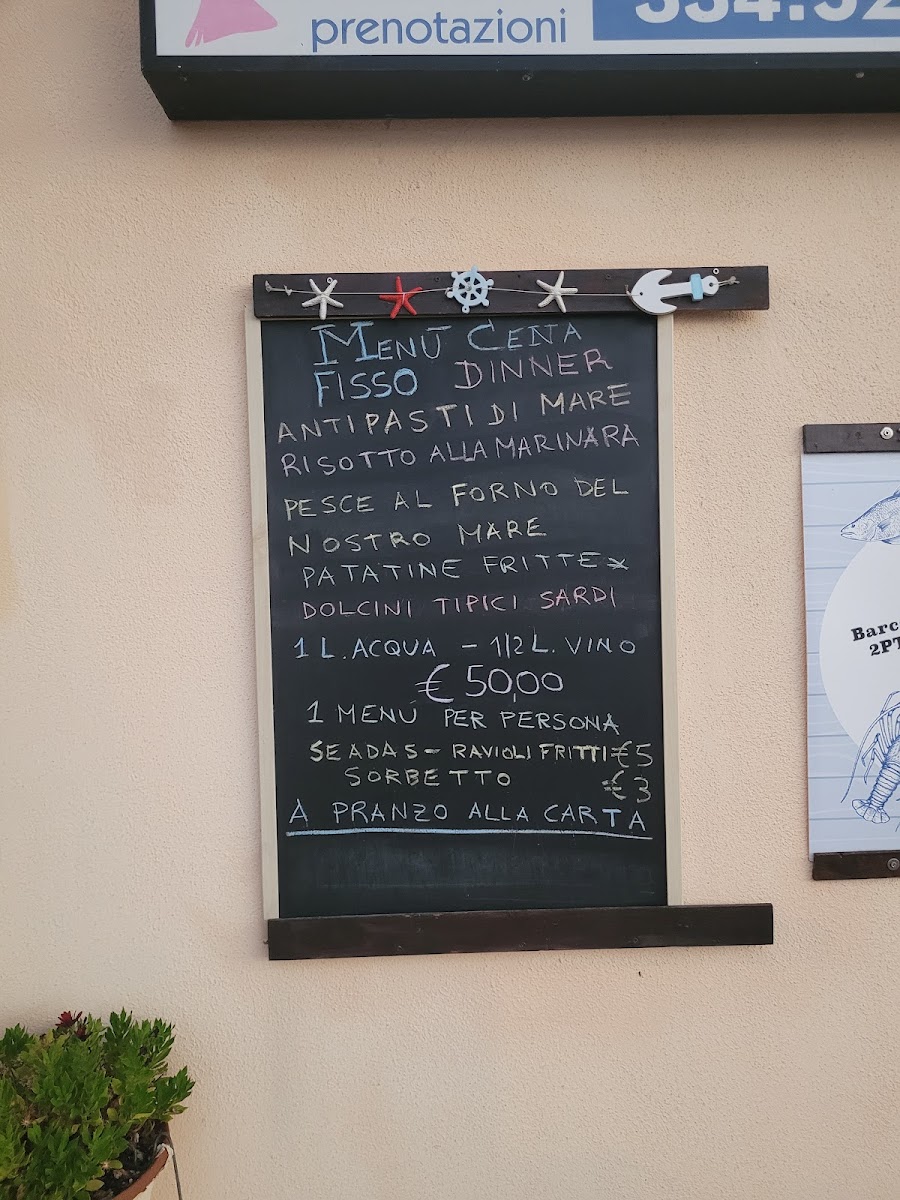 prenotazioni
MENÚ CENA
FISSO DINNER
ANTIPASTI DI MARE
RISOTTO ALLA MARINARA
PESCE AL FORNO DEL
NOSTRO MARE
PATATINE FRITTE x
DOLCINI TIPICI SARDI
1 L. ACQUA - 1/2 L. VINO
€ 50,00
1 MENÚ PER PERSONA
SEADAS - RAVIOLI FRITTI €5
SORBETTO €3
A PRANZO ALLA CARTA